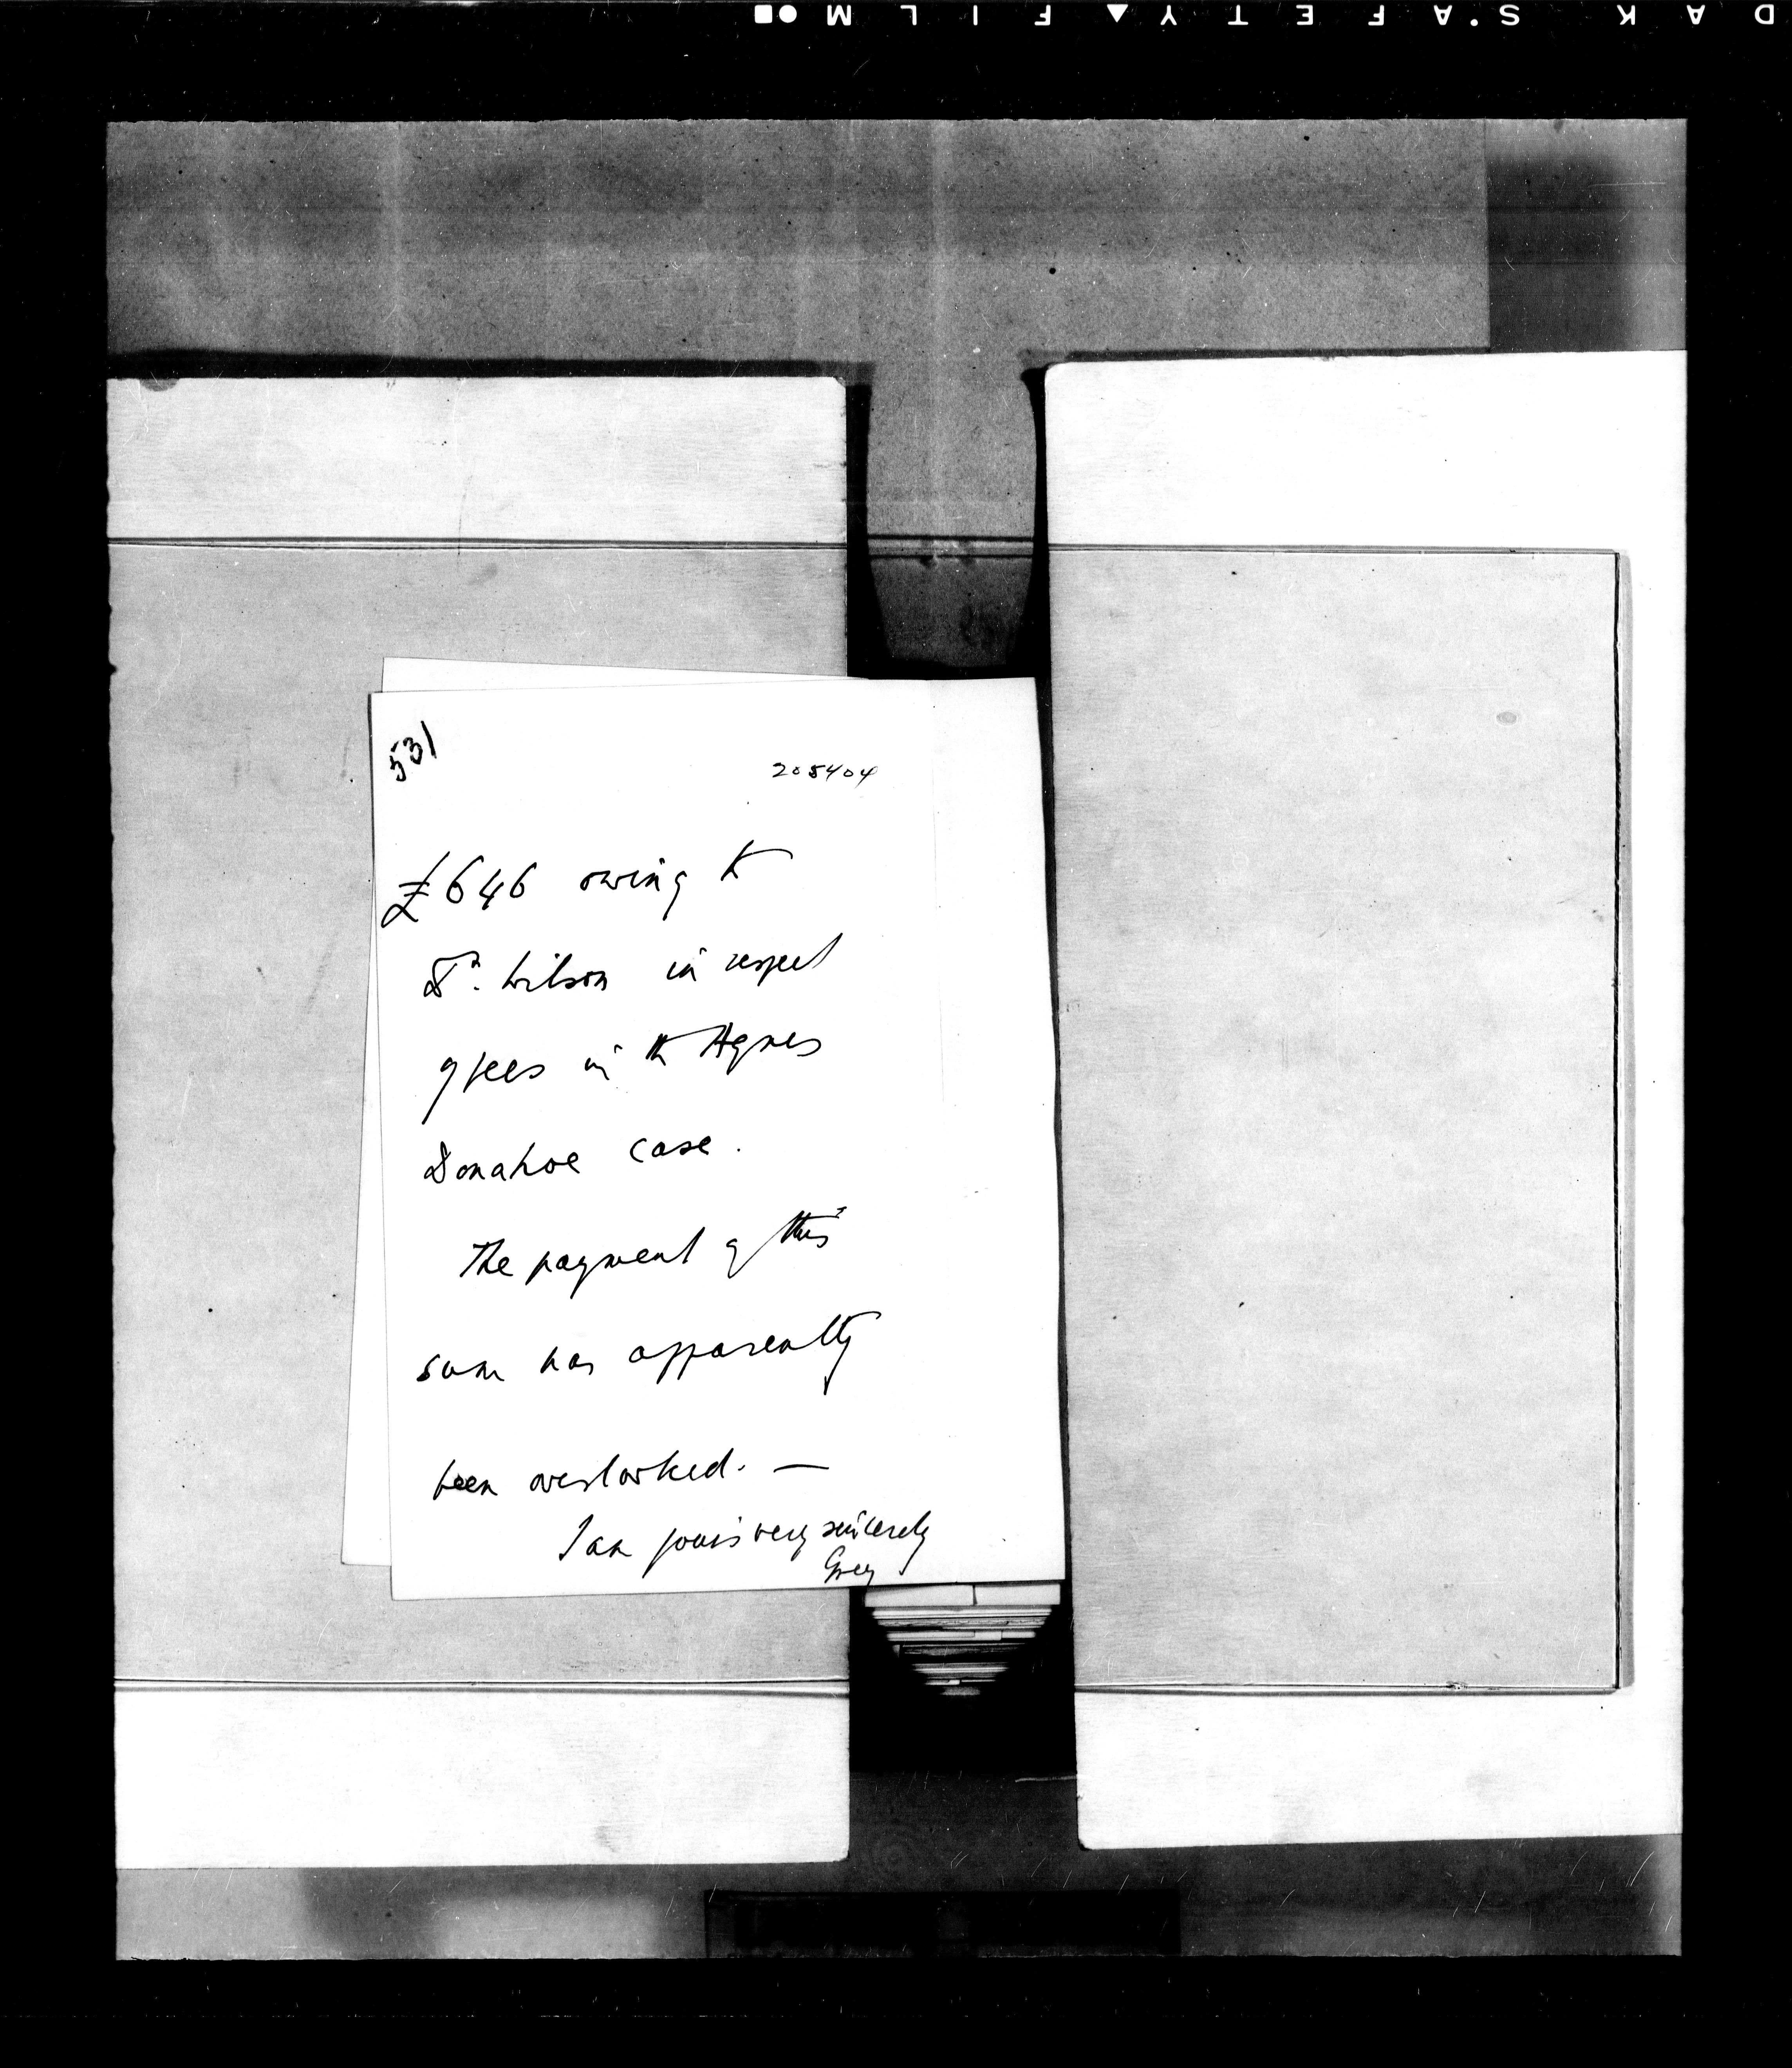 DAK S'AFETY FILM
531
205404
£646 owing to
Dr. Wilson in respect
of fees in the Agnes
Donahoe case.
The payment of this
sum has apparently
been overlooked. —
I am yours very sincerely
Grey